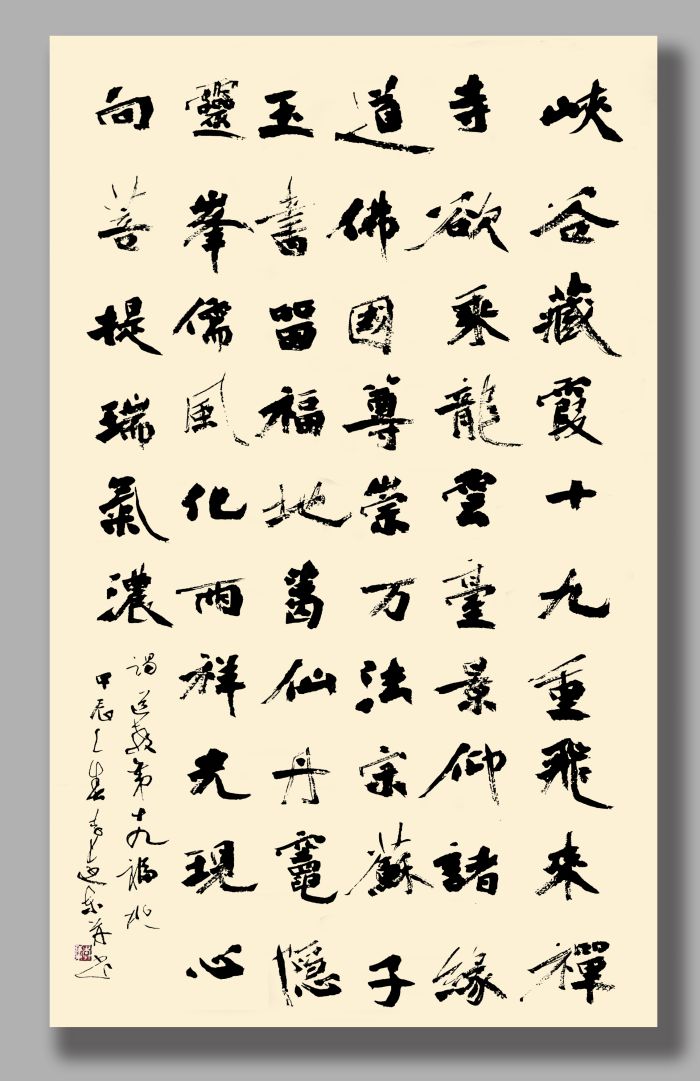 峽谷藏霞十九重飛來禪
寺欲乘龍雲臺景仰諸緣
道佛國尊崇万法宗蘇子
玉書留福地葛仙丹竈隱
靈峯儒風化雨祥光現心
向菩提瑞氣濃
謁道教第十九福地
甲辰之春